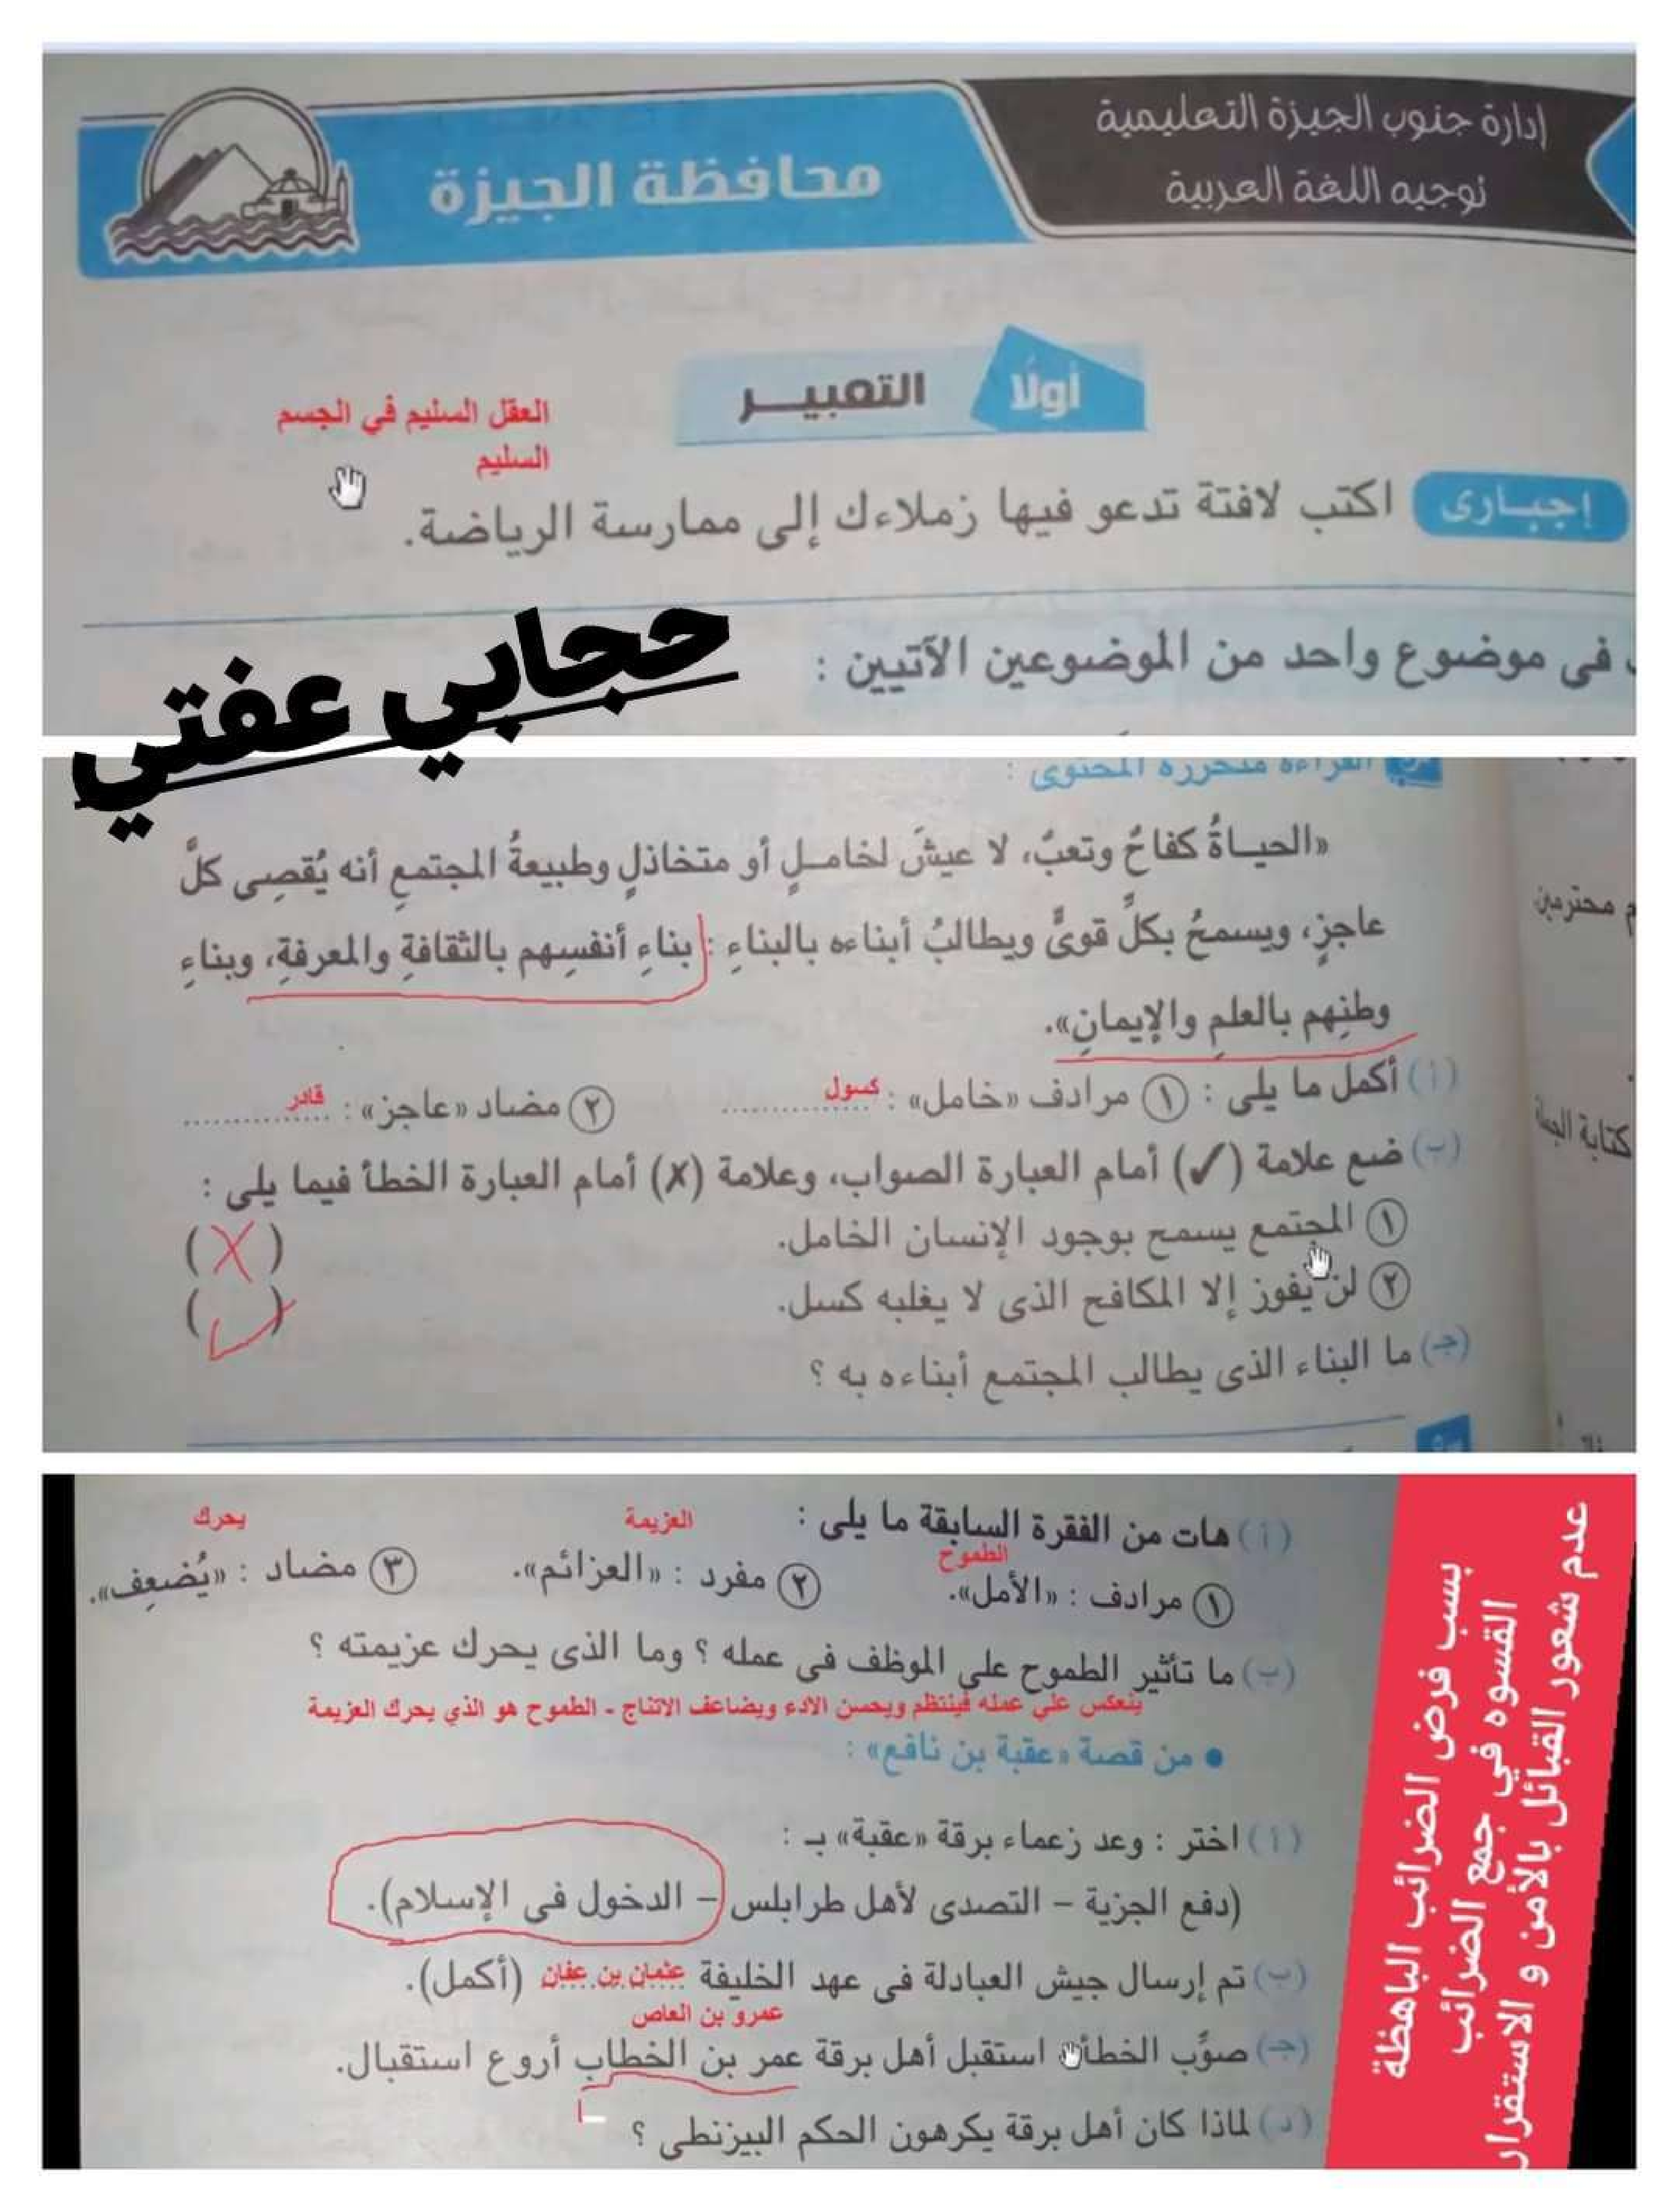 إدارة جنوب الجيزة التعليمية
توجيه اللغة العربية
محافظة الجيزة
أولًا
التعبير
العقل السليم في الجسم
السليم
إجبارى
اكتب لافتة تدعو فيها زملاءك إلى ممارسة الرياضة.
فى موضوع واحد من الموضوعين الآتيين :
حجابي عفتي
القراءة متحررة المحتوى :
«الحيـاةُ كفاحٌ وتعبٌ، لا عيشَ لخامـلٍ أو متخاذلٍ وطبيعةُ المجتمعِ أنه يُقصِى كلَّ
عاجزٍ، ويسمحُ بكلِّ قوىٍّ ويطالبُ أبناءه بالبناءِ : بناءِ أنفسِهم بالثقافةِ والمعرفةِ، وبناءِ
وطنِهم بالعلمِ والإيمانِ».
م محترمين
كتابة الجملة
(أ) أكمل ما يلى : ١ مرادف «خامل» : كسول ٢ مضاد «عاجز» : قادر
(ب) ضع علامة (✓) أمام العبارة الصواب، وعلامة (✗) أمام العبارة الخطأ فيما يلى :
١ المجتمع يسمح بوجود الإنسان الخامل. (X)
٢ لن يفوز إلا المكافح الذى لا يغلبه كسل. (✓)
(جـ) ما البناء الذى يطالب المجتمع أبناءه به ؟
(أ) هات من الفقرة السابقة ما يلى :
الطموح العزيمة يحرك
١ مرادف : «الأمل». ٢ مفرد : «العزائم». ٣ مضاد : «يُضعِف».
(ب) ما تأثير الطموح على الموظف فى عمله ؟ وما الذى يحرك عزيمته ؟
ينعكس علي عمله فينتظم ويحسن الادء ويضاعف الانتاج - الطموح هو الذي يحرك العزيمة
● من قصة «عقبة بن نافع» :
(أ) اختر : وعد زعماء برقة «عقبة» بـ :
(دفع الجزية – التصدى لأهل طرابلس – الدخول فى الإسلام).
(ب) تم إرسال جيش العبادلة فى عهد الخليفة عثمان بن عفان (أكمل).
عمرو بن العاص
(جـ) صوِّب الخطأ: استقبل أهل برقة عمر بن الخطاب أروع استقبال.
(د) لماذا كان أهل برقة يكرهون الحكم البيزنطى ؟
بسب فرض الضرائب الباهظة
القسوه في جمع الضرائب
عدم شعور القبائل بالأمن و الاستقرار